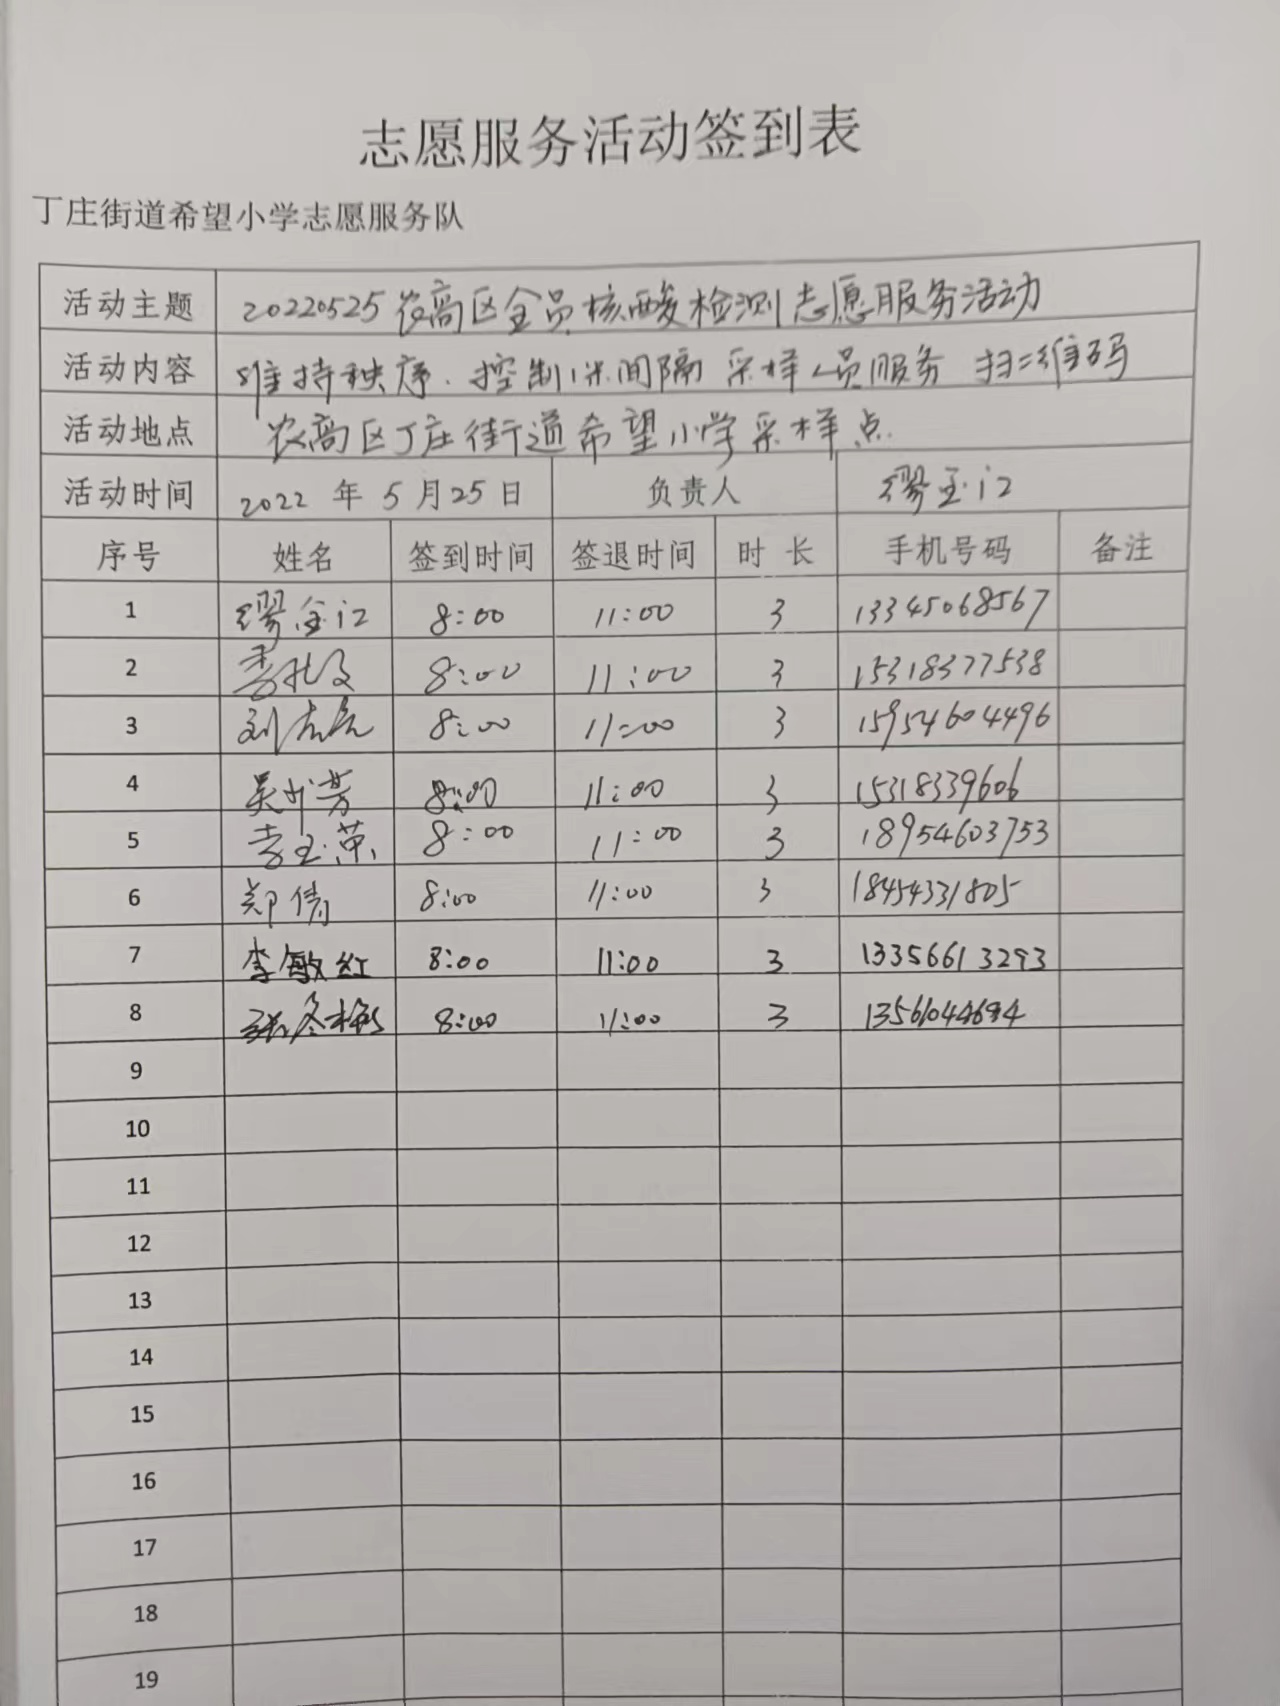 志愿服务活动签到表
丁庄街道希望小学志愿服务队
活动主题 20220525农高区全员核酸检测志愿服务活动
活动内容 维持秩序、控制1米间隔 采样人员服务 扫二维码
活动地点 农高区丁庄街道希望小学采样点
活动时间 2022年5月25日 负责人 缪玉江
序号 姓名 签到时间 签退时间 时长 手机号码 备注
1 缪玉江 8:00 11:00 3 13345068567
2 8:00 11:00 3 15318377538
3 8:00 11:00 3 15954604496
4 8:00 11:00 3 15318339606
5 李玉荣 8:00 11:00 3 18954603753
6 郑倩 8:00 11:00 3 18454331805
7 李敏红 8:00 11:00 3 13356613293
8 张冬梅 8:00 11:00 3 13561044694
9
10
11
12
13
14
15
16
17
18
19